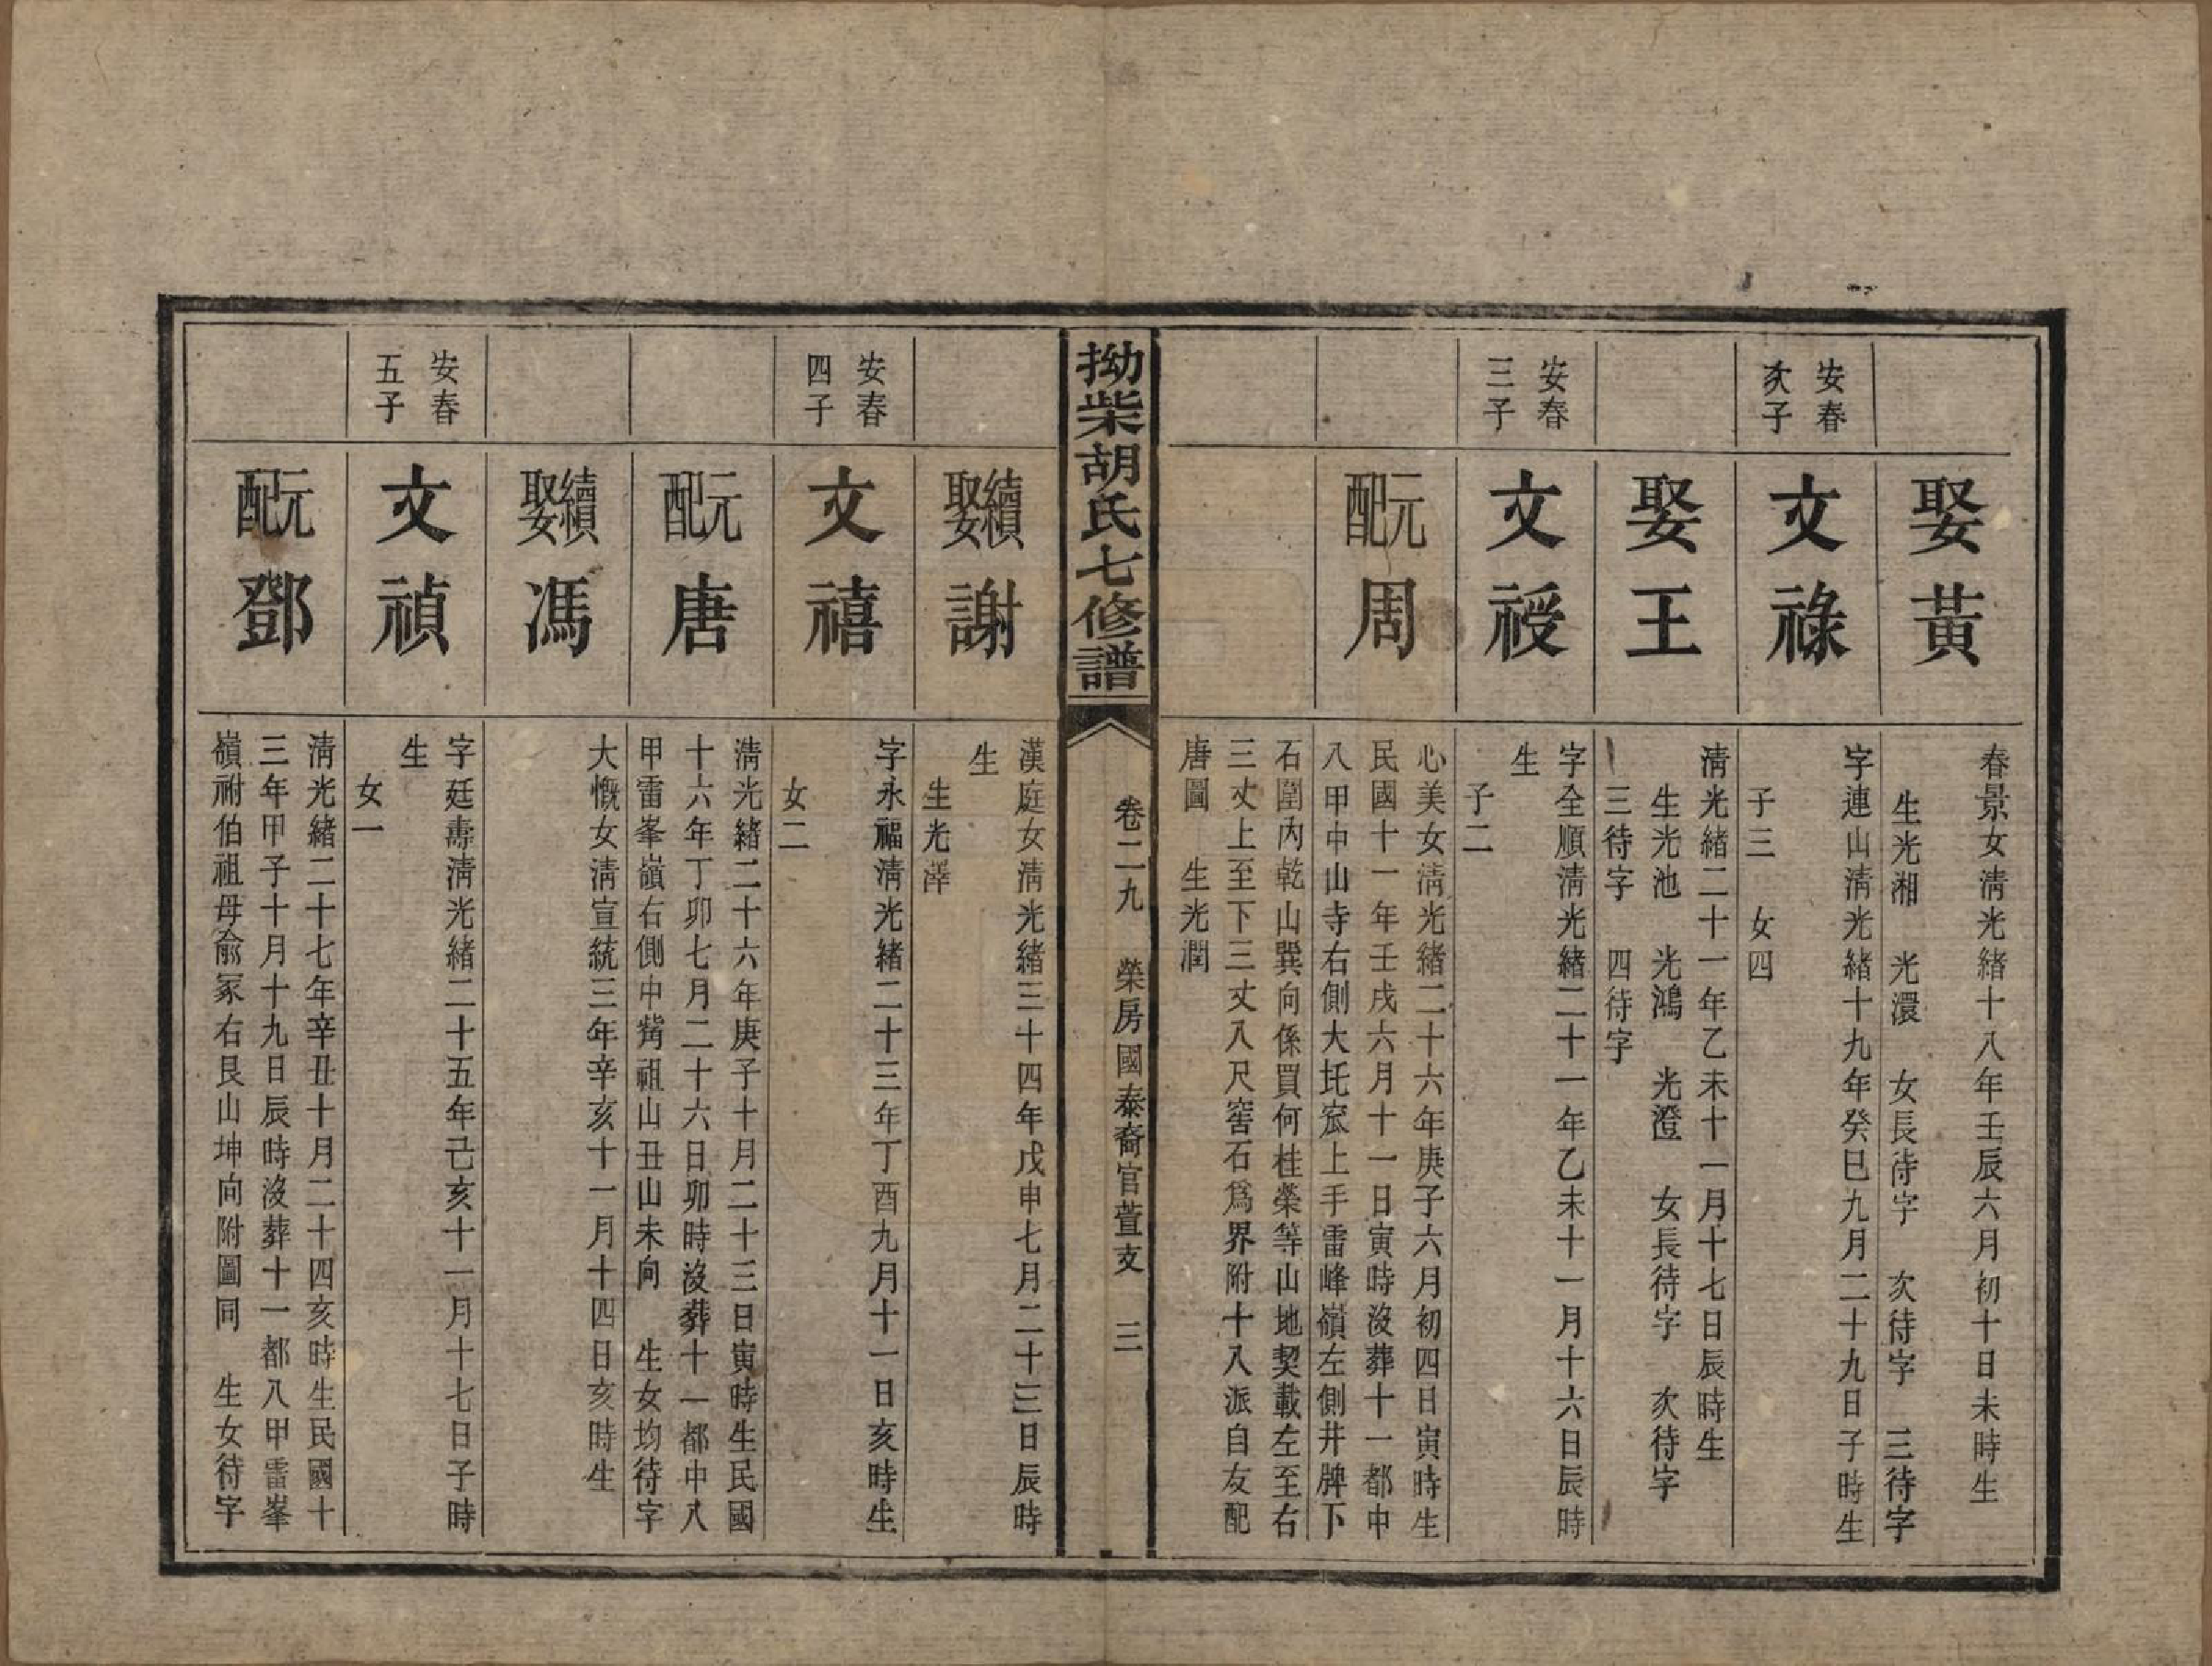 娶黃
春景女淸光緒十八年壬辰六月初十日未時生
生光湘　光澴　女長待字　次待字　三待字
安春
次子
文祿
字連山淸光緒十九年癸巳九月二十九日子時生
子三　女四
娶王
淸光緒二十一年乙未十一月十七日辰時生
生光池　光鴻　光澄　女長待字　次待字
三待字　四待字
安春
三子
文祋
字全順淸光緒二十一年乙未十一月十六日辰時
生
子二
元配周
心美女淸光緒二十六年庚子六月初四日寅時生
民國十一年壬戌六月十一日寅時沒葬十一都中
八甲中山寺右側大圫窊上手雷峰嶺左側井牌下
石圍內乾山巽向係買何桂榮等山地契載左至右
三丈上至下三丈八尺窖石爲界附十八派自友配
唐圖　生光潤
拗柴胡氏七修譜
卷二九　榮房國泰裔官萱支　三
續娶謝
漢庭女淸光緒三十四年戊申七月二十三日辰時
生
生光澤
安春
四子
文禧
字永福淸光緒二十三年丁酉九月十一日亥時生
女二
元配唐
淸光緒二十六年庚子十月二十三日寅時生民國
十六年丁卯七月二十六日卯時沒葬十一都中八
甲雷峯嶺右側中嘴祖山丑山未向　生女均待字
續娶馮
大慨女淸宣統三年辛亥十一月十四日亥時生
安春
五子
文禎
字廷壽淸光緒二十五年己亥十一月十七日子時
生
女一
元配鄧
淸光緒二十七年辛丑十月二十四亥時生民國十
三年甲子十月十九日辰時沒葬十一都八甲雷峯
嶺祔伯祖母俞冢右艮山坤向附圖同　生女待字